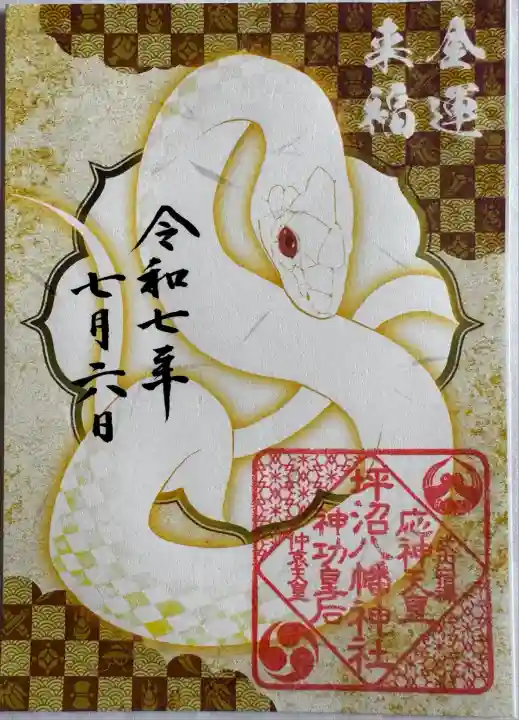 金運
来福
令和七年
七月六日
坪沼八幡神社
応神天皇
神功皇后
仲哀天皇